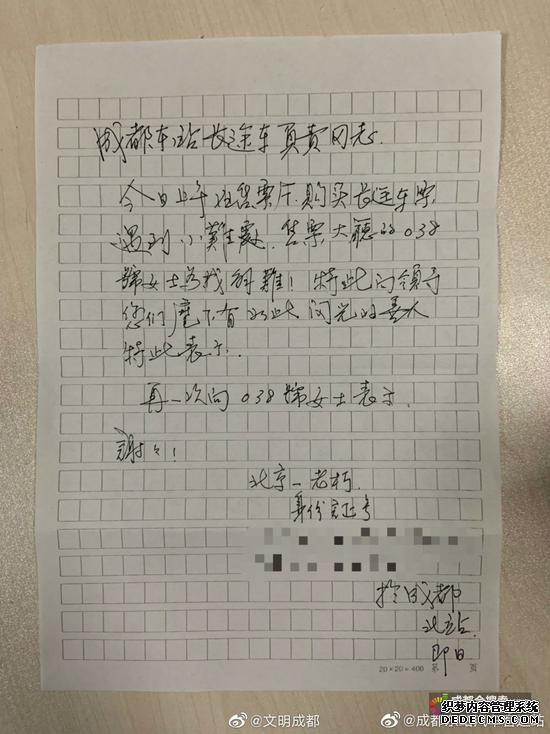 成都车站长途车负责同志.
今日上午在售票厅购买长途车票,
遇到小難處. 售票大廳的038
号女士为我解難! 特此向领导
您们麾下有如此闪光的善人
特此表示.
再一次向038号女士表示.
謝々!
北京一老朽.
身份证号
於成都
北站.
即日
20×20=400 第 页
成都全搜索
织梦内容管理系统
DEDECMS.COM
@文明成都
@成都